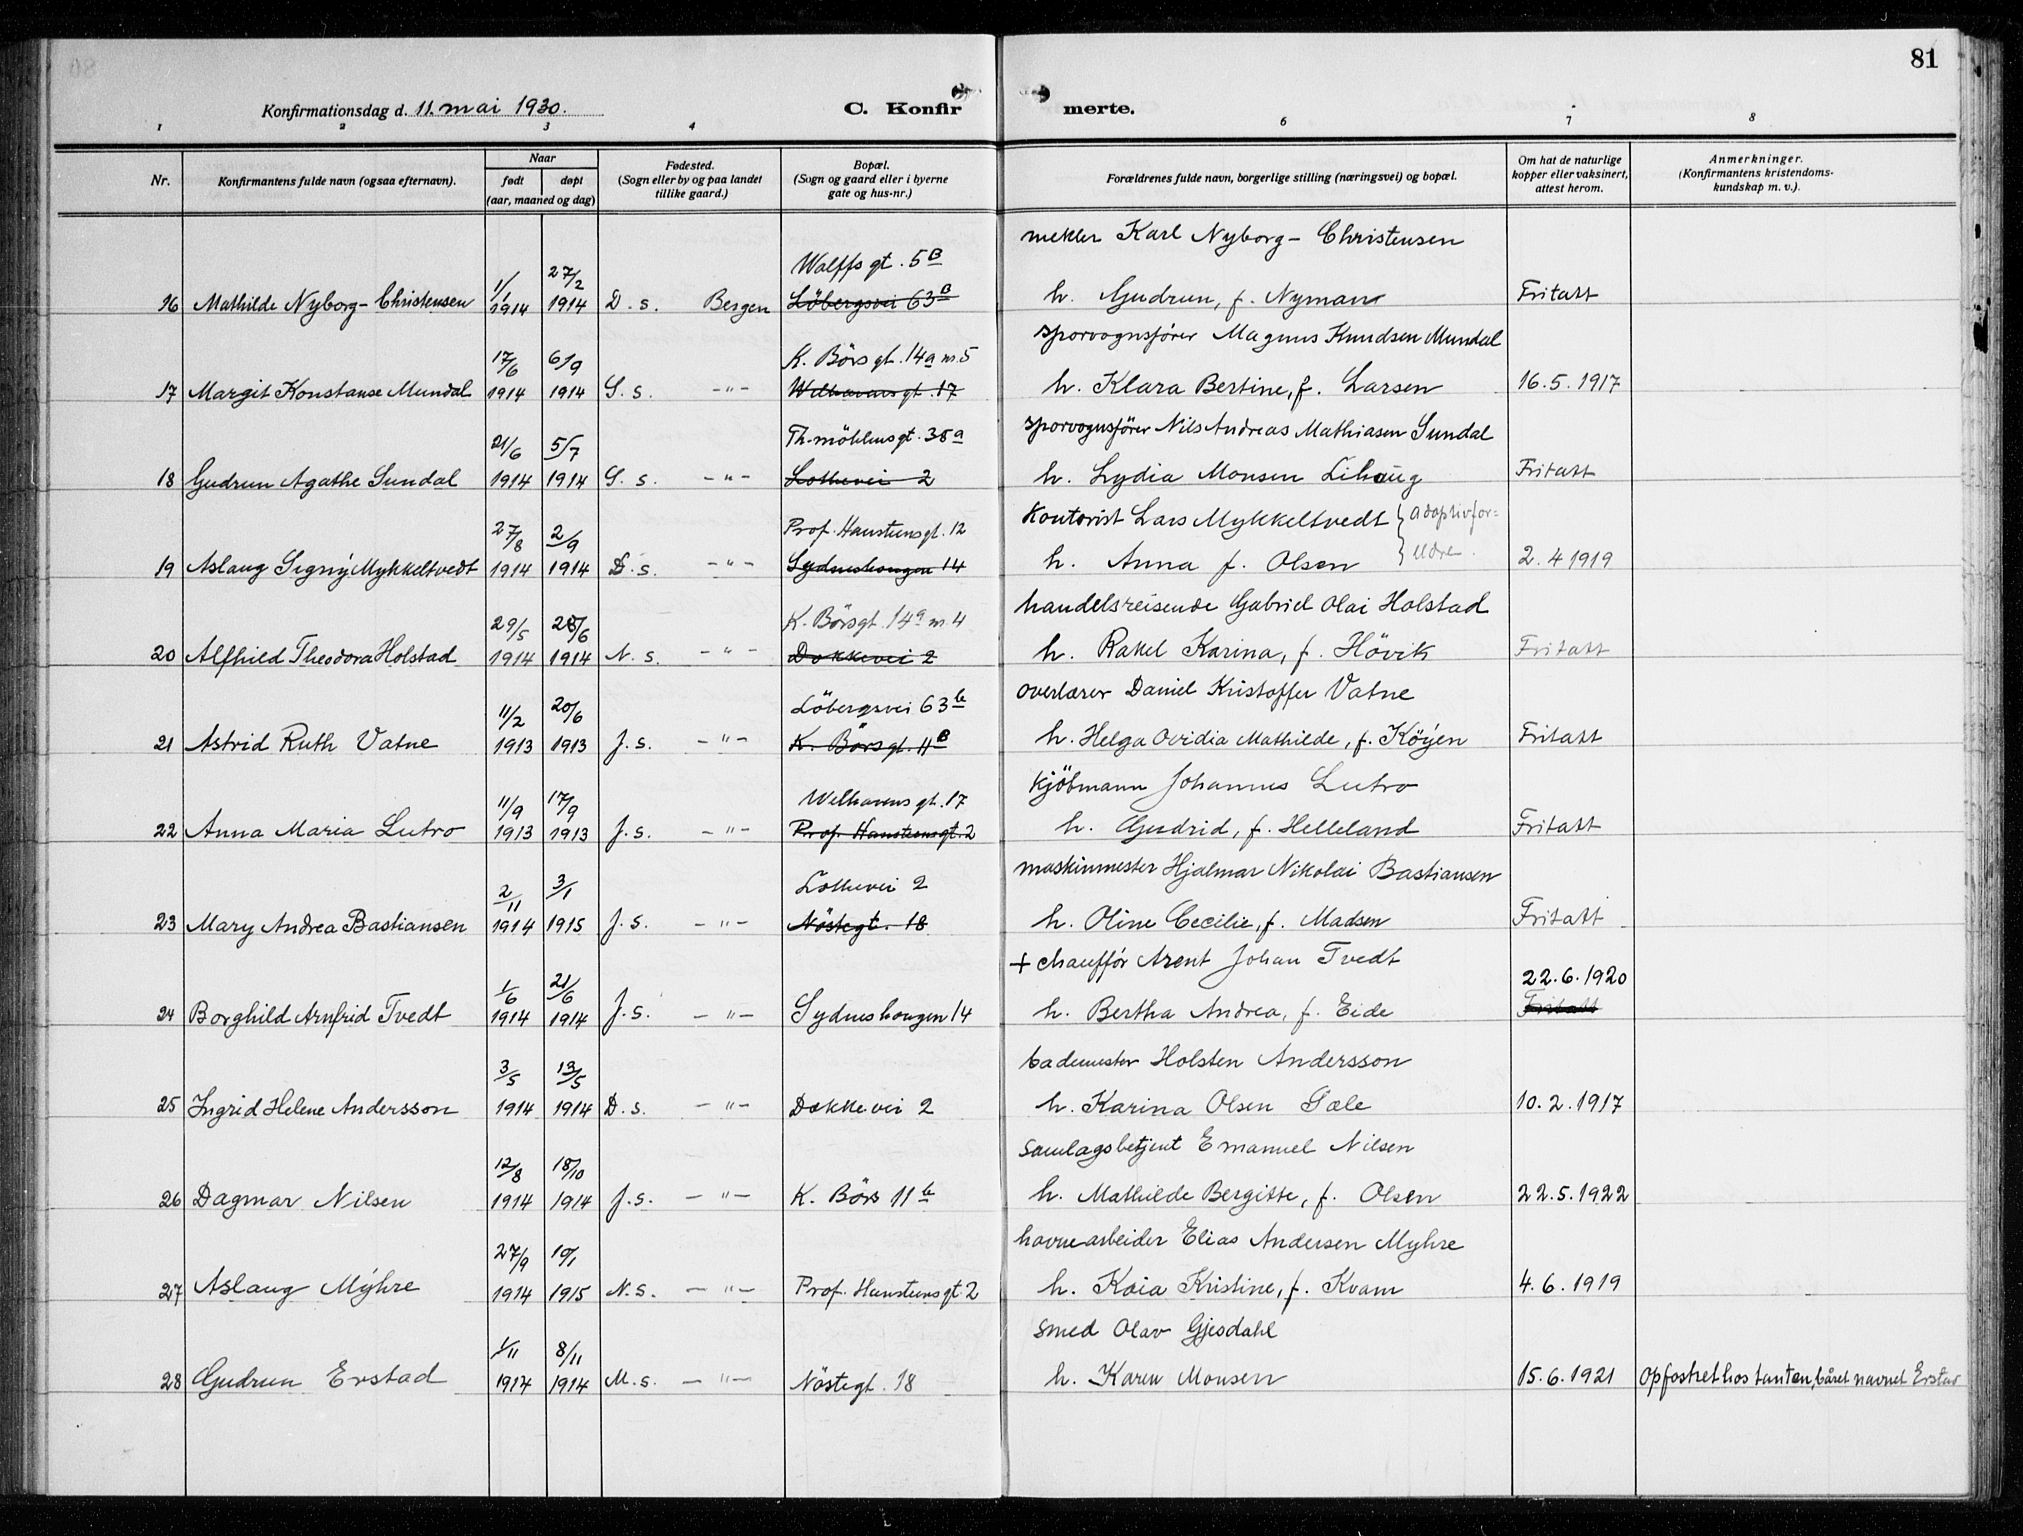 81
Konfirmationsdag d. 11. mai 1930.
C. Konfir merte.
1 2 3 4 6 7 8
Nr.
Konfirmantens fulde navn (ogsaa efternavn).
Naar
født døpt
(aar, maaned og dag)
Fødested.
(Sogn eller by og paa landet
tillike gaard.)
Bopæl.
(Sogn og gaard eller i byerne
gate og hus-nr.)
Forældrenes fulde navn, borgerlige stilling (næringsvei) og bopæl.
Om hat de naturlige
kopper eller vaksinert,
attest herom.
Anmerkninger.
(Konfirmantens kristendoms-
kundskap m. v.).
mekler Karl Nyborg-Christensen
1/1 27/2 Wolffs gt. 5B
16 Mathilde Nyborg-Christensen 1914 1914 D. s. Bergen Löbergsvei 63B h. Gudrun, f. Nyman Fritatt
sporvognsfører Magnus Knudsen Mundal
17/6 6/9 K. Börs gt. 14a m. 5
17 Margit Konstanse Mundal 1914 1914 S. s. -"- Welhavens gt. 17 h. Klara Bertine, f. Larsen 16.5.1917
sporvognsfører Nils Andreas Mathiasen Sundal
21/6 5/7 Th. möhlens gt. 35a
18 Gudrun Agathe Sundal 1914 1914 S. s. -"- Lothevei 2 h. Lydia Monsen Lihaug Fritatt
Kontorist Lars Mykkeltvedt } adoptivfor-
27/8 2/9 Prof. Hansteens gt. 12
19 Aslaug Signy Mykkeltvedt 1914 1914 D. s. -"- Sydneshaugen 14 h. Anna f. Olsen } eldre. 2.4 1919
handelsreisende Gabriel Olai Holstad
29/5 28/6 K. Börsgt. 14a m. 4
20 Alfhild Theodora Holstad 1914 1914 N. s. -"- Dokkevei 2 h. Rakel Karina, f. Hövik Fritatt
overlærer Daniel Kristoffer Vatne
11/2 20/6 Löbergsvei 63b
21 Astrid Ruth Vatne 1913 1913 J. s. -"- K. Börs gt. 11B h. Helga Ovidia Mathilde, f. Köyen Fritatt
kjöbmann Johannes Lutro
11/9 17/9 Welhavens gt. 17
22 Anna Maria Lutro 1913 1913 J. s. -"- Prof. Hansteens gt. 2 h. Gudrid, f. Helleland Fritatt
maskinmester Hjalmar Nikolai Bastiansen
2/11 3/1 Lothevei 2
23 Mary Andrea Bastiansen 1914 1915 J. s. -"- Nöstegt. 18 h. Oline Cecilie, f. Madsen Fritatt
+ chauffør Arent Johan Tvedt
1/6 21/6 22.6.1920
24 Borghild Arnfrid Tvedt 1914 1914 J. s. -"- Sydneshaugen 14 h. Bertha Andrea, f. Eide Fritatt
bademester Holsten Andersson
3/5 13/5
25 Ingrid Helene Andersson 1914 1914 D. s. -"- Dokkevei 2 h. Karina Olsen Gæle 10.2.1917
samlagsbetjent Emanuel Nilsen
12/8 18/10
26 Dagmar Nilsen 1914 1914 J. s. -"- K. Börs 11b h. Mathilde Bergitte, f. Olsen 22.5.1922
havnearbeider Elias Andersen Myhre
27/9 10/1
27 Aslaug Myhre 1914 1915 N. s. -"- Prof. Hansteens gt. 2 h. Kaia Kristine, f. Kvam 4.6.1919
smed Olav Gjesdahl
1/11 8/11
28 Gudrun Erstad 1914 1914 M. s. -"- Nöstegt. 18 h. Karen Monsen 15.6.1921 Opfostret hos tanten, båret navnet Erstad